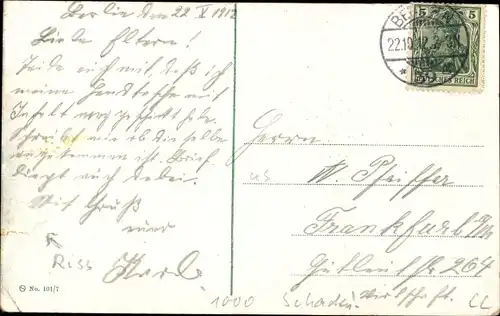 Berlin den 22 X 1912
Liebe Eltern!
Teile euch mit, daß ich
meine Handtasche mit
Inhalt weggeschickt habe.
Schreibt mir ob dieselbe
angekommen ist. Brief
liegt auch dabei.
Mit Gruß
euer
Karl
Riss
No. 101/7
22.10.12
5 5
DEUTSCHES REICH
Herrn
W. Pfeiffer
Frankfurt a/M
Gutleutstr 264
Wirtschaft.
1000 Schaden!